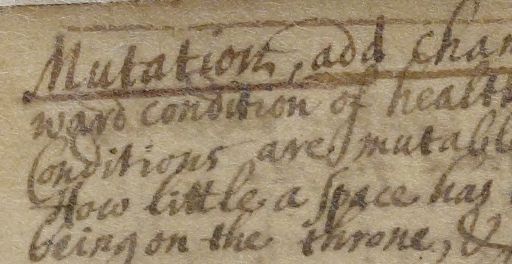 Mutation, add chan
ward condition of healt
Conditions are mutabl
How little a space has
being on the throne, &